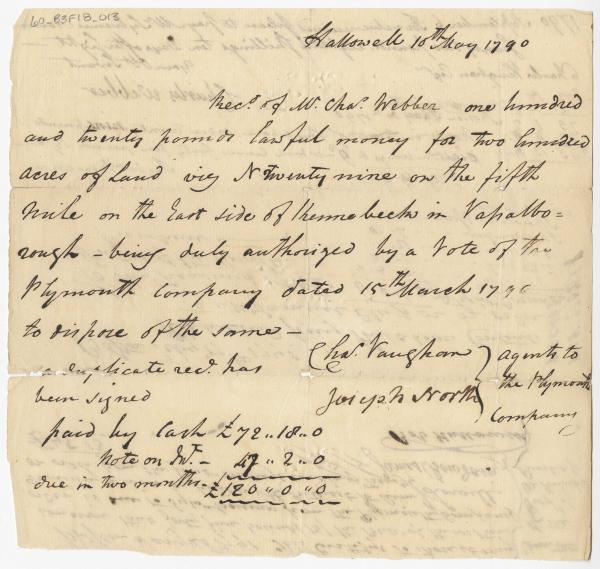 60-B3F18-013
Hallowell 10th May 1790
Rec.d of Mr. Chas. Webber one hundred
and twenty pounds lawful money for two hundred
acres of Land viz N twenty nine on the fifth
Mile on the East side of Kennebeck in Vasalbo=
rough - being duly authorized by a Vote of the
Plymouth Company dated 15th March 1790
to dispose of the same -
a duplicate rec.t has
been signed
Chas. Vaughan
Joseph North
agents to
the Plymouth
Company
paid by Cash £72..18..0
Note on Int. - 47..2..0
due in two months - £120..0..0